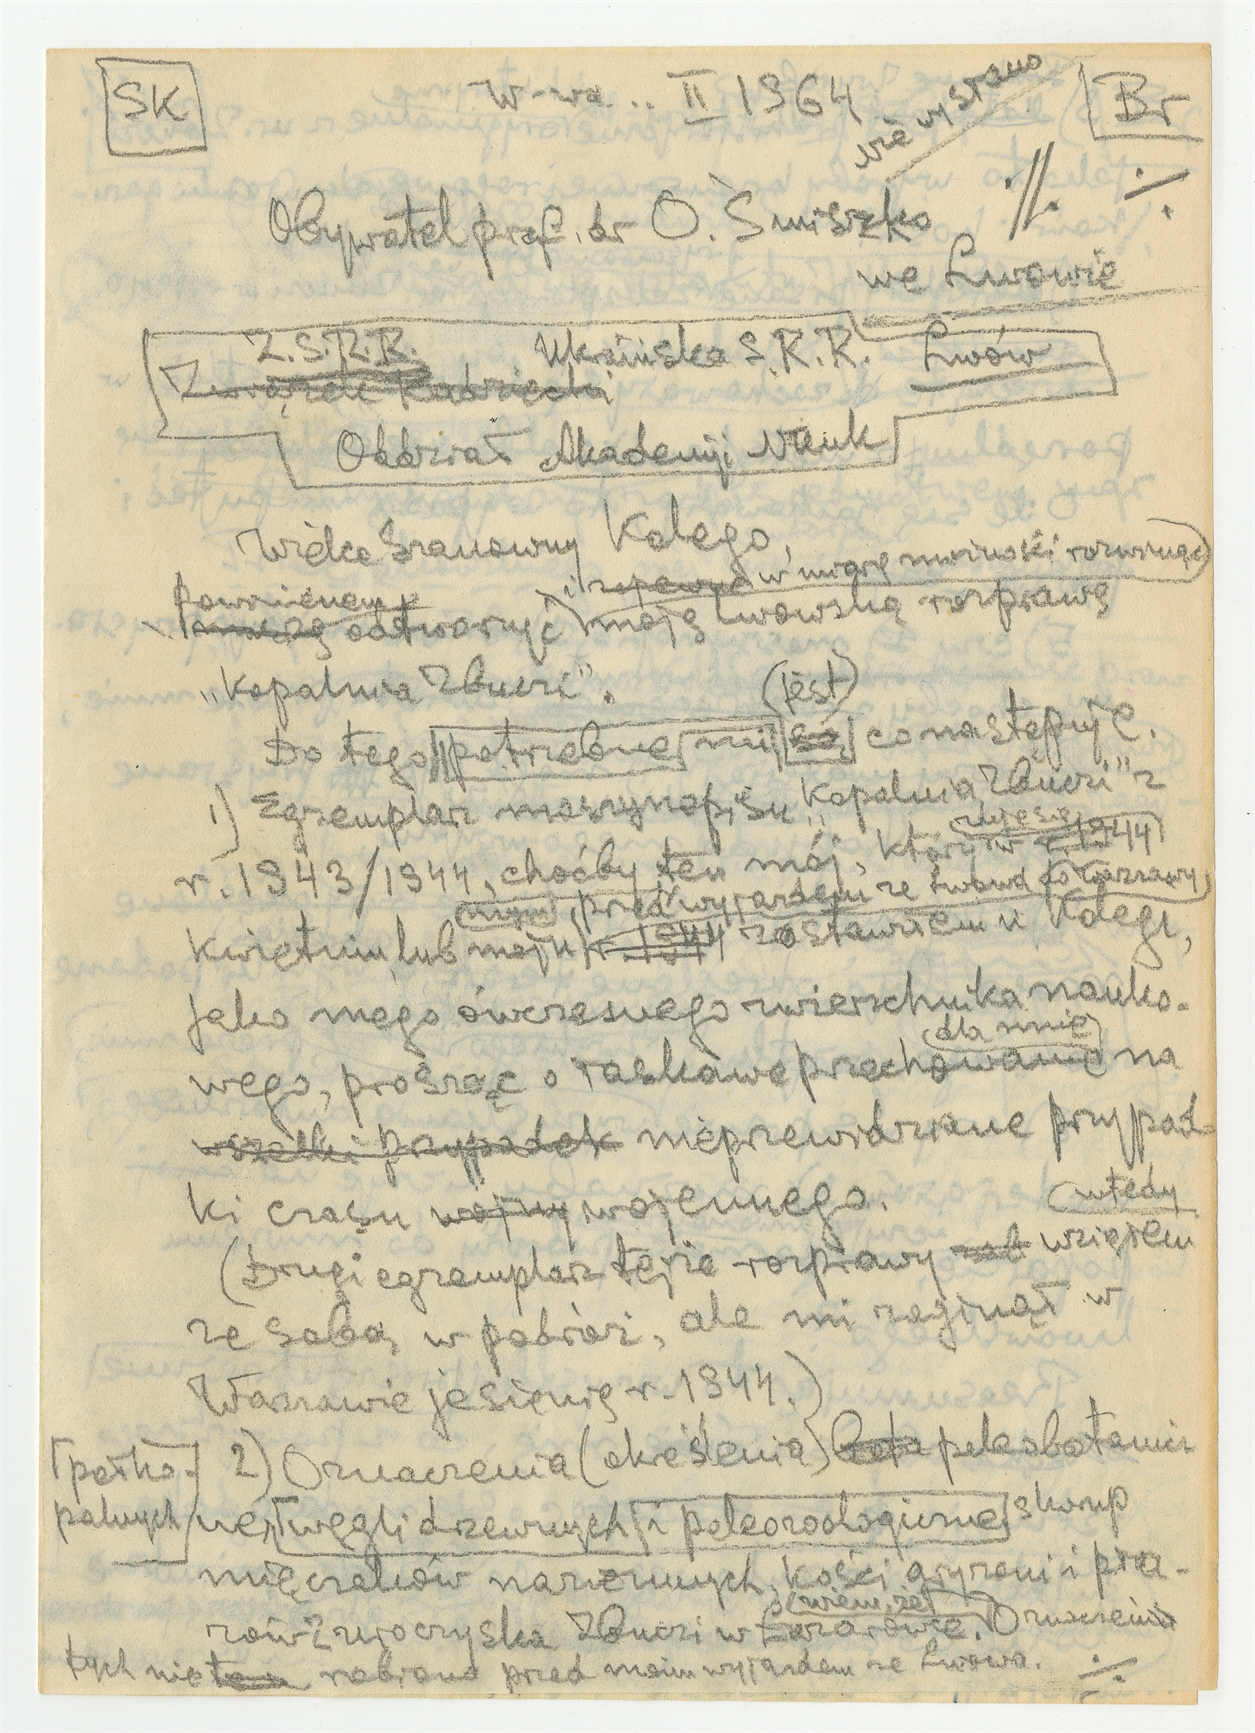 SK
W-wa .. II 1964
nie wysłano
Br
Obywatel prof. dr O. Smiszko
we Lwowie
Z.S.R.R. Ukraińska S.R.R. Lwów
Związek Radziecki
Oddział Akademji Nauk
Wielce Szanowny Kolego,
i zapewne w miarę możności rozwinąć
Powinienem
odtworzyć moją lwowską rozprawę
„Kopalnia Zbuczi".
(jest)
Do tego potrzebne mi są co następuje.
1) Egzemplarz maszynopisu „Kopalnia Zbuczi" z
r. 1943/1944, choćby ten mój, który w r. 1944
przed wyjazdem ze Lwowa do Warszawy,
kwietniu lub maju r. 1944 zostawiłem u Kolegi,
jako mego ówczesnego zwierzchnika nauko-
dla mnie
wego, prosząc o łaskawe przechowanie na
wszelki przypadek nieprzewidziane przypad-
ki czasu wojny wojennego.
wtedy
(Drugi egzemplarz tejże rozprawy wziąłem
ze sobą w podróż, ale mi zaginął w
Warszawie jesienią r. 1944.)
2) Oznaczenia (określenia) paleobotanicz
[pańko-
palnych
ne węgli drzewnych i paleozoologiczne skorup
mięczaków naziemnych, kości gryzoni i pła-
wiem, że
zów z uroczyska Zbuczi w Łazarówce. Oznaczenia
tych nie robiono przed moim wyjazdem ze Lwowa.